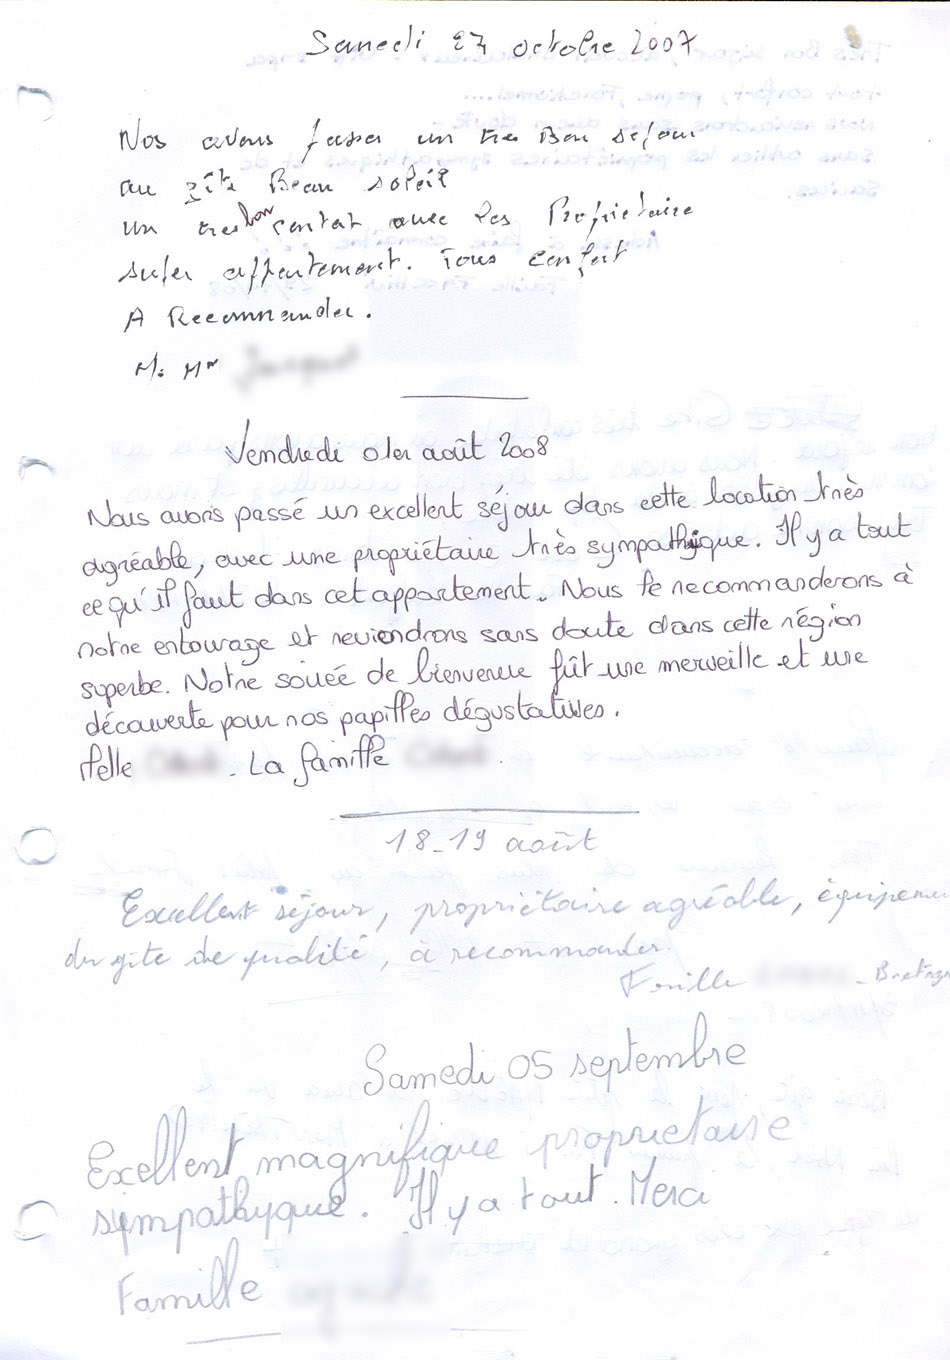 Samedi 27 octobre 2007
Nos avons passer un tres Bon sejour
au gîte Beau soleil
un tres bon contat avec les Proprietaire
super appartement. Tous confort
A Recommander.
M. Mm
Vendredi 01er août 2008
Nous avons passé un excellent séjour dans cette location très
agréable, avec une propriétaire très sympathique. Il y a tout
ce qu'il faut dans cet appartement. Nous le recommanderons à
notre entourage et reviendrons sans doute dans cette région
superbe. Notre soirée de bienvenue fût une merveille et une
découverte pour nos papilles dégustatives.
Melle . La famille .
18-19 août
Excellent séjour, propriétaire agréable, équipemen
du gite de qualité, à recommander.
Famille - Bretagn
Samedi 05 septembre
Excellent magnifique proprietaire
sympathyque. Il y a tout. Merci
Famille